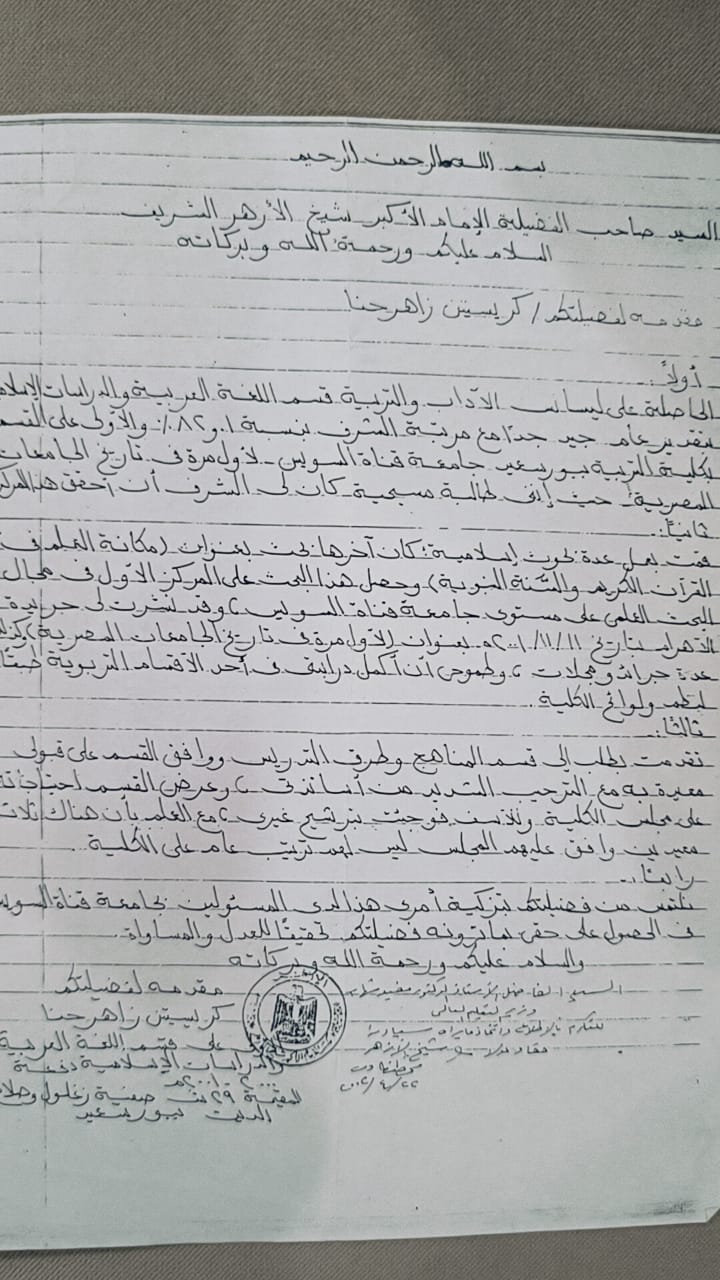 بسم الله الرحمن الرحيم
السيد صاحب الفضيلة الإمام الأكبر شيخ الأزهر الشريف
السلام عليكم ورحمة الله وبركاته
مقدمه لفضيلتكم / كريستين زاهر حنا
أولاً:
الحاصلة على ليسانس الآداب والتربية قسم اللغة العربية والدراسات الإسلا
بتقدير عام جيد جدًا مع مرتبة الشرف بنسبة ٨٢,٠١٪ والأولى على القسم
بكلية التربية ببورسعيد جامعة قناة السويس - لأول مرة فى تاريخ الجامعات
المصرية؛ حيث إننى طالبة مسيحية كان لى الشرف أن أحقق هذا المركز
ثانيًا:
قمت بعمل عدة بحوث إسلامية؛ كان آخرها بحث بعنوان (مكانة العلم فى
القرآن الكريم والسُّنة النبوية) وحصل هذا البحث على المركز الأول فى مجال
البحث العلمى على مستوى جامعة قناة السويس، وقد نشرت لى جريدة
الأهرام بتاريخ ١١/١١/٢٠٠١م بعنوان (لأول مرة فى تاريخ الجامعات المصرية)
عدة جرائد ومجلات، وطموحى أن أكمل دراستى فى أحد الأقسام التربوية طبقًا
لنظم ولوائح الكلية.
ثالثًا:
تقدمت بطلب إلى قسم المناهج وطرق التدريس ووافق القسم على قبولى
معيدة به مع الترحيب الشديد من أساتذتى، وعرض القسم احتياجاته
على مجلس الكلية وللأسف فوجئت بترشيح غيرى، مع العلم بأن هناك ثلاث
معيدين وافق عليهم المجلس ليس لهم ترتيب عام على الكلية.
رابعًا:
نلتمس من فضيلتكم بتزكية أمرى هذا لدى المسئولين بجامعة قناة السويس
فى الحصول على حقى بما ترونه فضيلتكم تحقيقًا للعدل والمساواة.
والسلام عليكم ورحمة الله وبركاته
مقدمه لفضيلتكم
كريستين زاهر حنا
على قسم اللغة العربية
والدراسات الإسلامية دفعة
المقيمة ٢٩ ش صفية زغلول
بورسعيد
السيد الأستاذ الدكتور مفيد شهاب
وزير التعليم العالى
شيخ الأزهر
٢٢/٤/٢٠٠٢